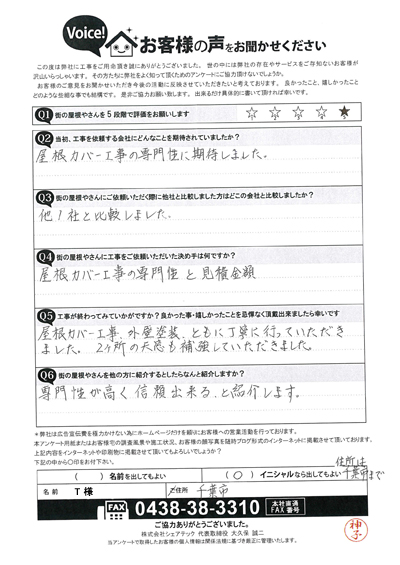 Voice!
お客様の声をお聞かせください
この度は弊社に工事をご用命頂き誠にありがとうございました。世の中には弊社の存在やサービスをご存知ないお客様が
沢山いらっしゃいます。その方たちに弊社をよく知って頂くためのアンケートにご協力頂けないでしょうか。
お客様のご意見をお聞かせいただき今後の活動に反映させていただきたいと考えております。良かったこと、嬉しかったこと
どのような些細な事でも結構です。是非ご協力お願い致します。出来るだけ具体的に書いて頂ければ幸いです。
Q1 街の屋根やさんを5段階で評価をお願いします
☆ ☆ ☆ ☆ ★
Q2 当初、工事を依頼する会社にどんなことを期待されていましたか?
屋根カバー工事の専門性に期待しました。
Q3 街の屋根やさんにご依頼いただく際に他社と比較しました方はどこの会社と比較しましたか?
他1社と比較しました。
Q4 街の屋根やさんに工事をご依頼いただいた決め手は何ですか?
屋根カバー工事の専門性と見積金額
Q5 工事が終わってみていかがですか?良かった事・嬉しかったことを忌憚なく頂戴出来ましたら幸いです
屋根カバー工事、外壁塗装、ともに丁寧に行っていただき
ました。2ヶ所の天窓も補強していただきました。
Q6 街の屋根やさんを他の方に紹介するとしたらなんと紹介しますか?
専門性が高く信頼出来る、と紹介します。
※弊社は広告宣伝費を極力かけない為にホームページだけを頼りにお客様への営業活動を行っております。
本アンケート用紙またはお客様宅の調査風景や施工状況、お客様の顔写真を随時ブログ形式のインターネットに掲載させて頂いております。
上記内容をインターネットや印刷物に掲載させて頂いてもよろしいでしょうか?
下記の中から〇印をお付け下さい。
住所は
千葉市まで
( )名前を出してもよい (○)イニシャルなら出してもよい
名前 T様 ご住所 千葉市
FAX 0438-38-3310 本社直通 FAX番号
ご協力ありがとうございました。
株式会社シェアテック 代表取締役 大久保 誠二
当アンケートで取得したお客様の個人情報は関係法規に基づき厳正に管理いたします。
神子